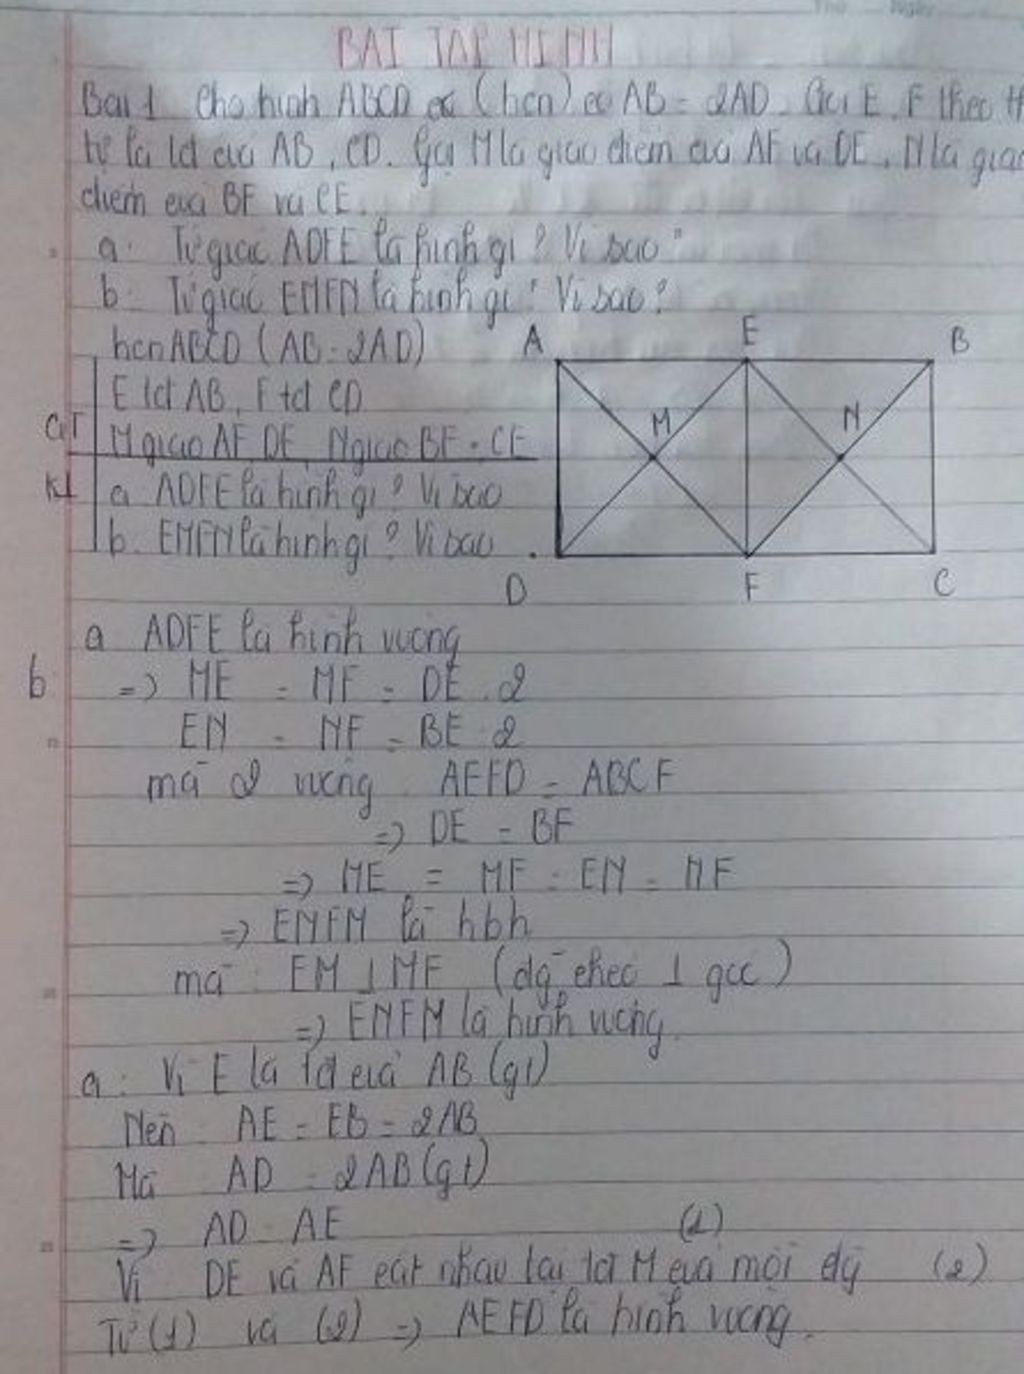 BÀI TẬP HÌNH
Bài 1 Cho hình ABCD (hcn) có AB = 2AD. Gọi E, F theo th
tự là tđ của AB, CD. Gọi M là giao điểm của AF và DE, N là giao
điểm của BF và CE.
a. Tứ giác ADFE là hình gì? Vì sao?
b. Tứ giác EMFN là hình gì? Vì sao?
hcn ABCD (AB = 2AD)
E tđ AB, F tđ CD
GT M giao AF DE, N giao BF - CE
KL a. ADFE là hình gì? Vì sao
b. EMFN là hình gì? Vì sao
A E B
M N
D F C
a ADFE là hình vuông
b => ME = MF = DE : 2
EN = NF = BE : 2
mà 2 vuông AEFD = ABCF
=> DE = BF
=> ME = MF = EN = NF
=> ENFM là hbh
mà EM ⊥ MF (đg chéo ⊥ góc)
=> ENFM là hình vuông.
a: Vì E là tđ của AB (gt)
Nên AE = EB = 2AB
Mà AD = 2AB (gt)
=> AD = AE (1)
Vì DE và AF cắt nhau tại tđ M của mỗi đg (2)
Từ (1) và (2) => AEFD là hình vuông.